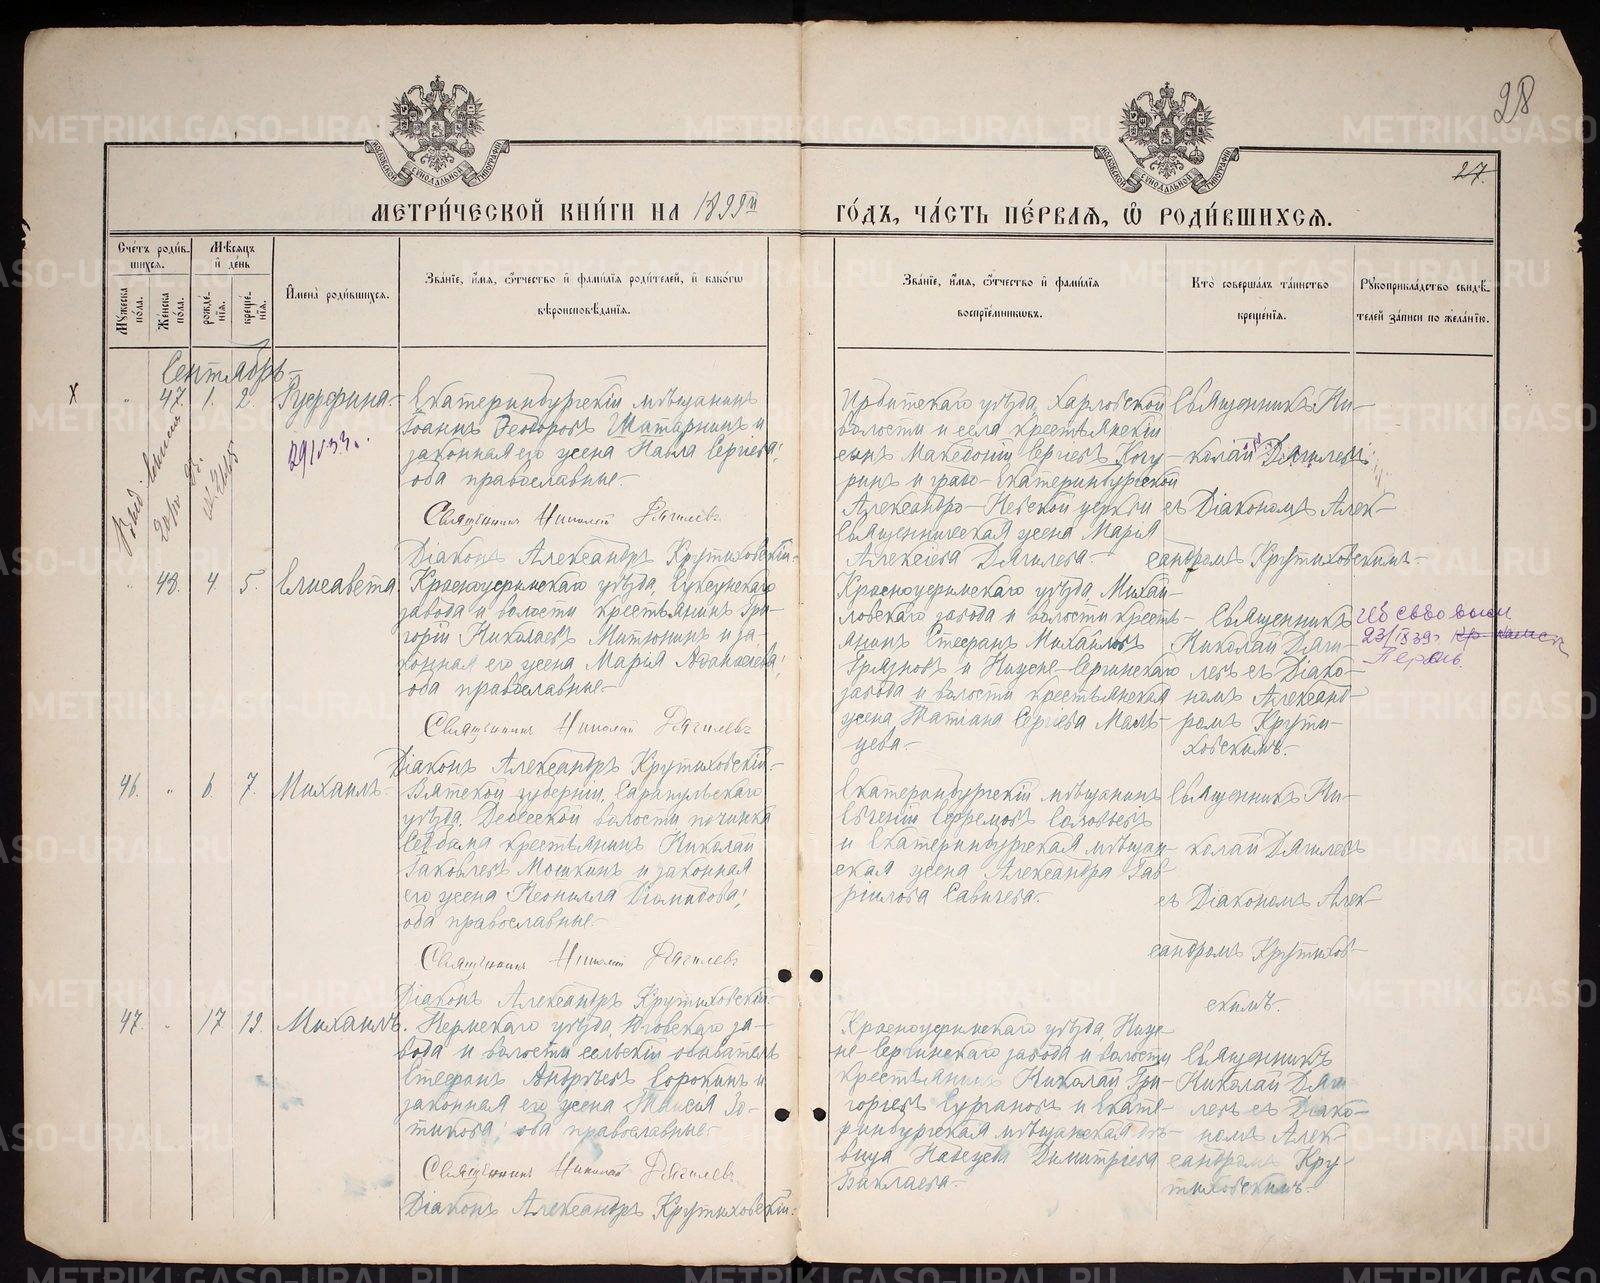 28
27.
МЕТРИ́ЧЕСКОЙ КНИ́ГИ НА 1899й ГО́ДЪ, ЧА́СТЬ ПЕ́РВАЯ, Ѽ РОДИ́ВШИХСЯ.
Сче́тъ роди́в-
шихся.
Мѣ́сяцъ
и҆ де́нь
Мꙋ́жеска по́ла.
Же́нска по́ла.
рожде́-
нїя.
креще́-
нїя.
И҆мена̀ роди́вшихся.
Зва́нїе, и҆́мя, ѻ҆́тчество и҆ фами́лїя роди́телей, и҆ како́гѡ
вѣроисповѣ́данїя.
Зва́нїе, и҆́мя, ѻ҆́тчество и҆ фами́лїя
воспрїе́мникѡвъ.
Кто̀ соверша́лъ та́инство
креще́нїя.
Рꙋкоприкла́дство свидѣ́-
телей за́писи по жела́нїю.
Сентябрь
47. 1. 2. Руффина.
Екатеринбургскій мѣщанинъ
Іоаннъ Ѳеодоровъ Шатаринъ и
законная его жена Павла Сергіева;
оба православные.
Священникъ Николай Дягилевъ
Діаконъ Александръ Крутиховскій.
Ирбитскаго уѣзда, Харловской
волости и села крестьянскій
сынъ Македоній Сергіевъ Когу-
ринъ и градо-Екатеринбургской
Александро-Невской церкви
священническая жена Марія
Алексіева Дягилева.
Священникъ Ни-
колай Дягилевъ
съ Діакономъ Алек-
сандромъ Крутиховскимъ.
48. 4. 5. Елисавета.
Красноуфимскаго уѣзда, Суксунскаго
завода и волости крестьянинъ Гри-
горій Николаевъ Митюнинъ и за-
конная его жена Марія Аѳанасіева;
оба православные.
Священникъ Николай Дягилевъ
Діаконъ Александръ Крутиховскій.
Красноуфимскаго уѣзда, Михай-
ловскаго завода и волости кресть-
янинъ Стефанъ Михайловъ
Грязновъ и Нижне-Сергинскаго
завода и волости крестьянская
жена Татіана Сергіева Маль-
цева.
Священникъ
Николай Дяги-
левъ съ Діако-
номъ Александ-
ромъ Крути-
ховскимъ.
23/IX 39г
46. 6. 7. Михаилъ.
Вятской губерніи, Сарапульскаго
уѣзда, Дебесской волости починка
крестьянинъ Николай
Іаковлевъ Мошкинъ и законная
его жена Неонилла Діомидова;
оба православные.
Священникъ Николай Дягилевъ
Діаконъ Александръ Крутиховскій.
Екатеринбургскій мѣщанинъ
Евгеній Ефремовъ Соловьевъ
и Екатеринбургская мѣщан-
ская жена Александра Гав-
ріилова Савичева.
Священникъ Ни-
колай Дягилевъ
съ Діакономъ Алек-
сандромъ Крутихов-
скимъ.
47. 17 19. Михаилъ.
Пермскаго уѣзда, Юговскаго за-
вода и волости сельскій обыватель
Стефанъ Андреевъ Сорокинъ и
законная его жена Таисія Зо-
тикова; оба православные.
Священникъ Николай Дягилевъ
Діаконъ Александръ Крутиховскій.
Красноуфимскаго уѣзда, Ниж-
не-Сергинскаго завода и волости
крестьянинъ Николай Гри-
горьевъ Сургановъ и Екате-
ринбургская мѣщанская дѣ-
вица Надежда Димитріева
Баклаева.
Священникъ
Николай Дяги-
левъ съ Діако-
номъ Алек-
сандромъ Кру-
тиховскимъ.